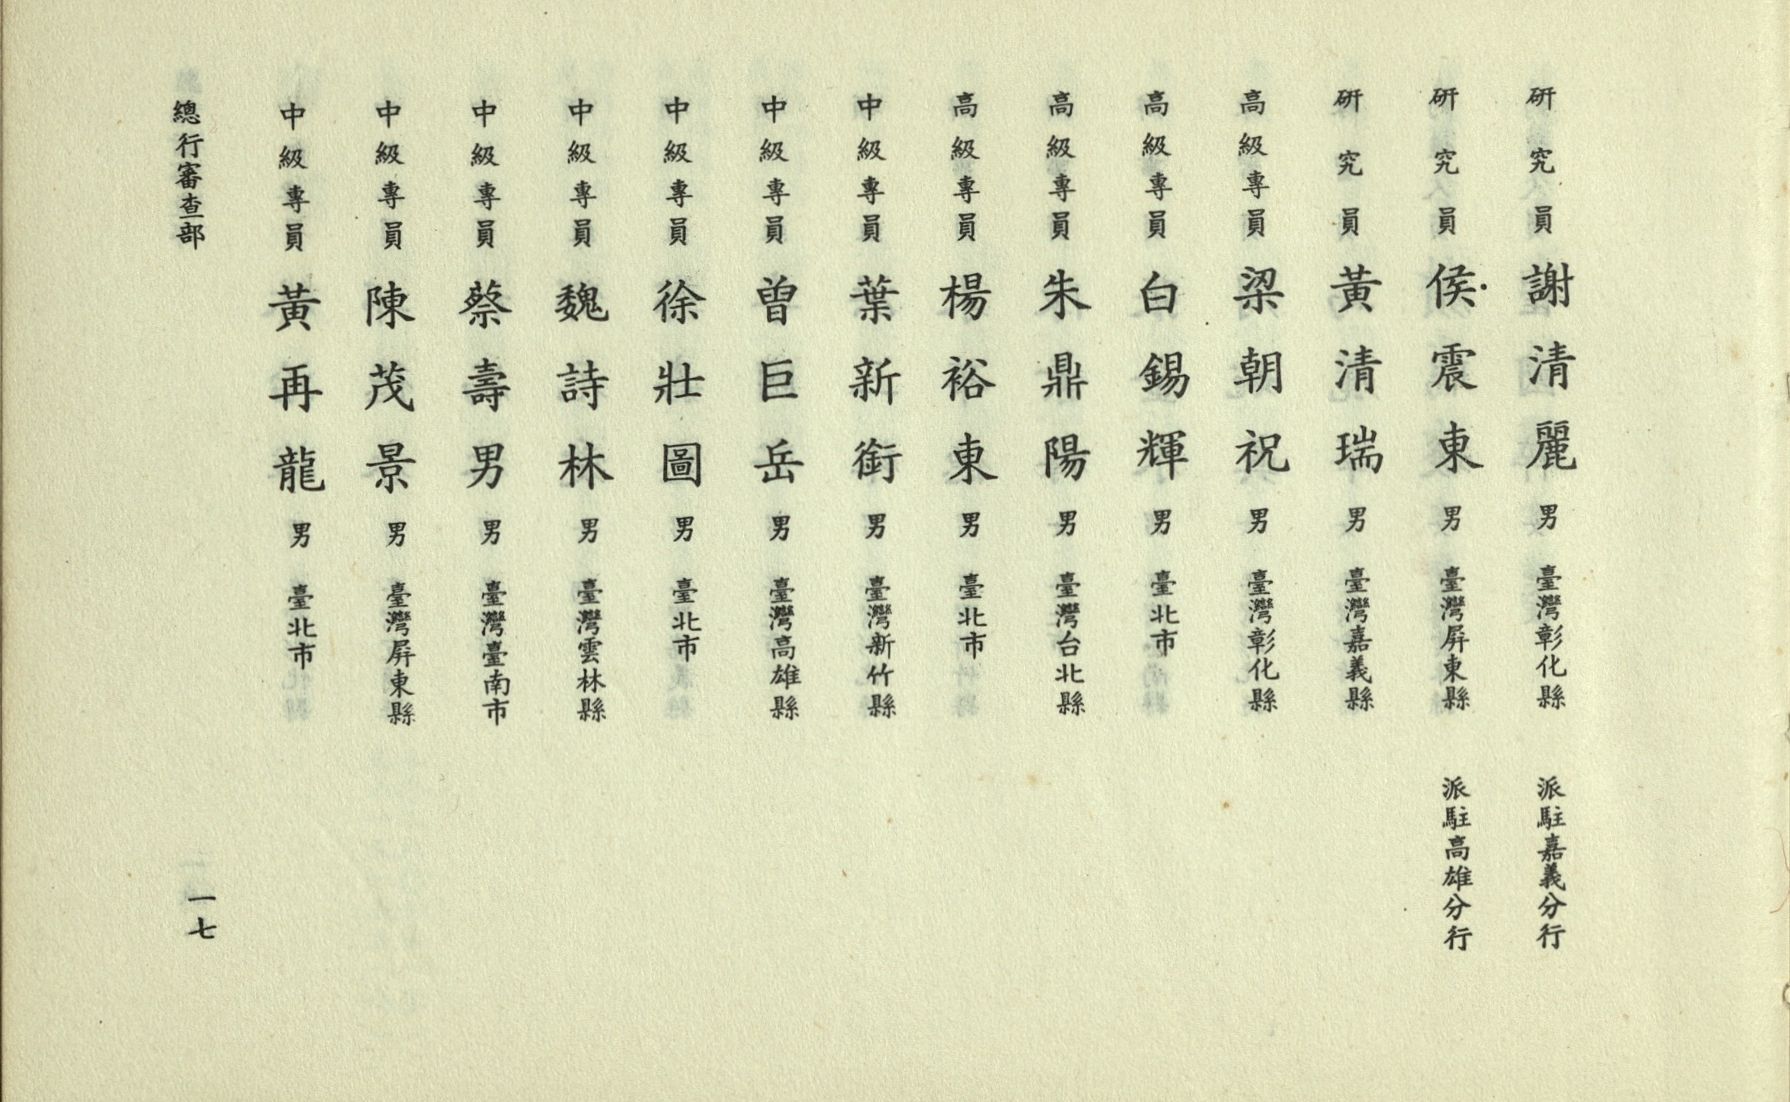 研究員 謝清麗 男 臺灣彰化縣 派駐嘉義分行
研究員 侯震東 男 臺灣屏東縣 派駐高雄分行
研究員 黃清瑞 男 臺灣嘉義縣
高級專員 梁朝祝 男 臺灣彰化縣
高級專員 白錫輝 男 臺北市
高級專員 朱鼎陽 男 臺灣台北縣
高級專員 楊裕東 男 臺北市
中級專員 葉新銜 男 臺灣新竹縣
中級專員 曾巨岳 男 臺灣高雄縣
中級專員 徐壯圖 男 臺北市
中級專員 魏詩林 男 臺灣雲林縣
中級專員 蔡壽男 男 臺灣臺南市
中級專員 陳茂景 男 臺灣屏東縣
中級專員 黃再龍 男 臺北市
總行審查部
一七